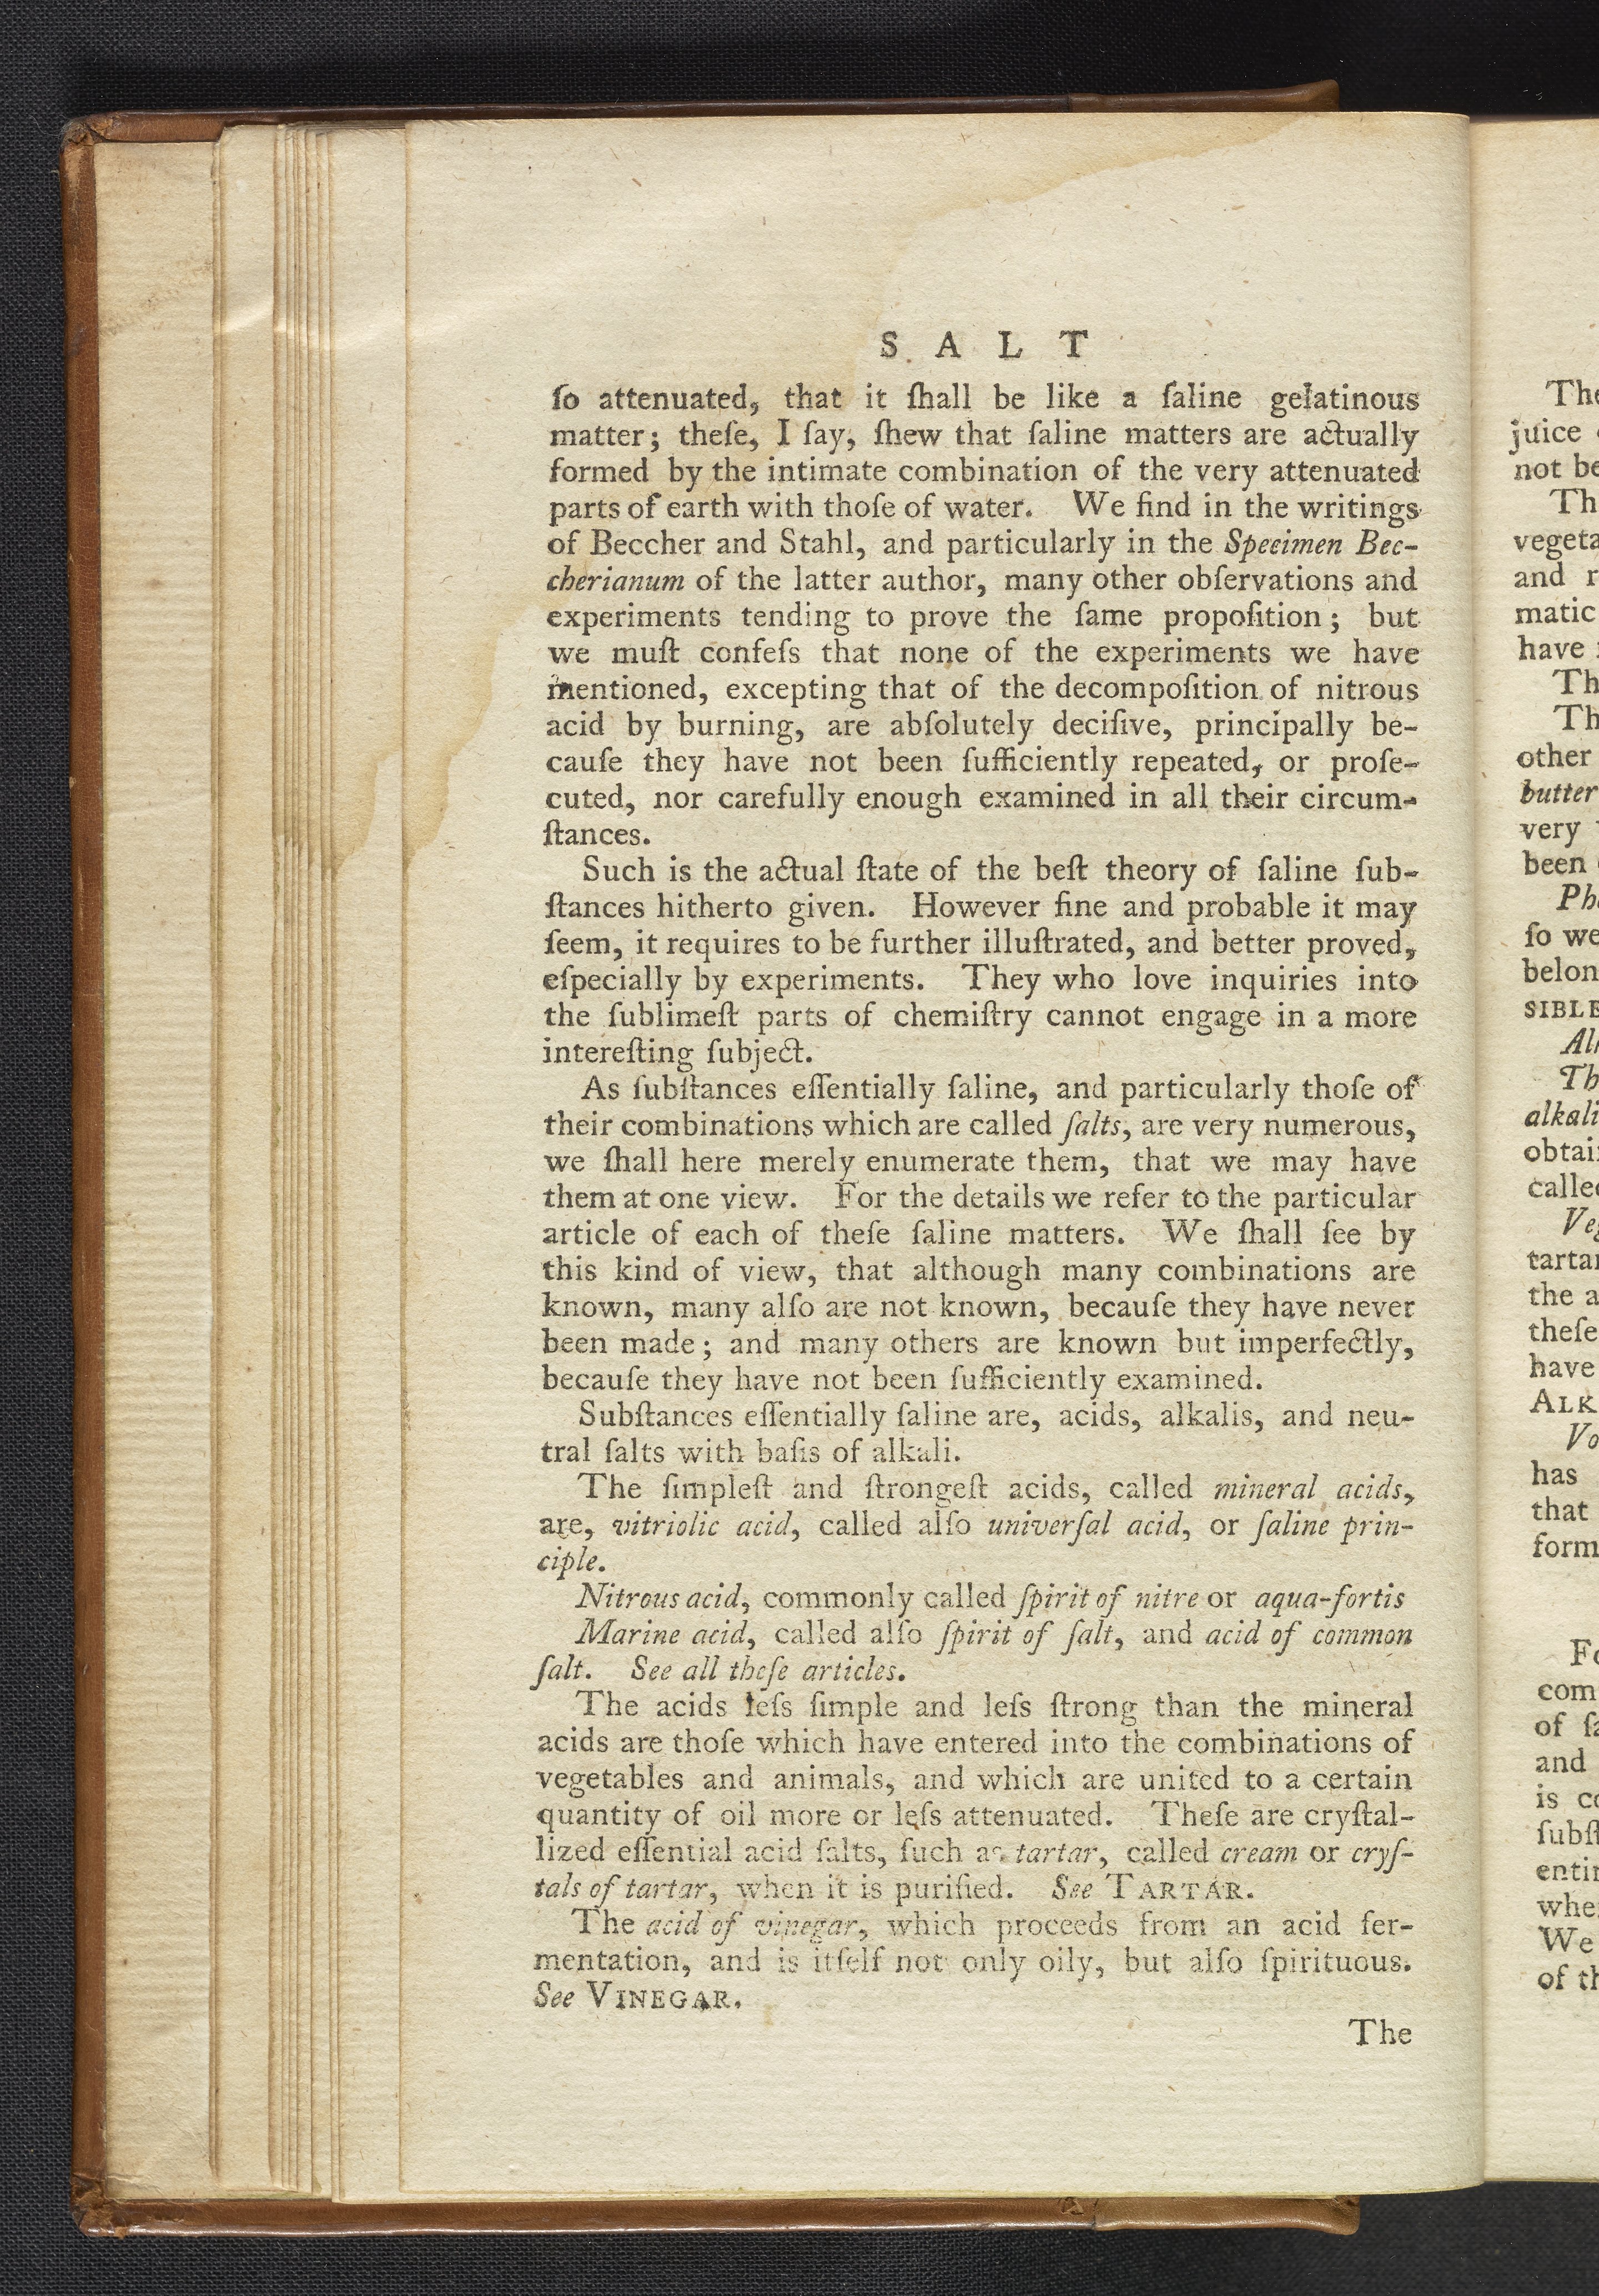 S A L T
ſo attenuated, that it ſhall be like a ſaline gelatinous
matter; theſe, I ſay, ſhew that ſaline matters are actually
formed by the intimate combination of the very attenuated
parts of earth with thoſe of water. We find in the writings
of Beccher and Stahl, and particularly in the Specimen Bec-
cherianum of the latter author, many other obſervations and
experiments tending to prove the ſame propoſition; but
we muſt confeſs that none of the experiments we have
mentioned, excepting that of the decompoſition of nitrous
acid by burning, are abſolutely deciſive, principally be-
cauſe they have not been ſufficiently repeated, or proſe-
cuted, nor carefully enough examined in all their circum-
ſtances.
Such is the actual ſtate of the beſt theory of ſaline ſub-
ſtances hitherto given. However fine and probable it may
ſeem, it requires to be further illuſtrated, and better proved,
eſpecially by experiments. They who love inquiries into
the ſublimeſt parts of chemiſtry cannot engage in a more
intereſting ſubject.
As ſubſtances eſſentially ſaline, and particularly thoſe of
their combinations which are called ſalts, are very numerous,
we ſhall here merely enumerate them, that we may have
them at one view. For the details we refer to the particular
article of each of theſe ſaline matters. We ſhall ſee by
this kind of view, that although many combinations are
known, many alſo are not known, becauſe they have never
been made; and many others are known but imperfectly,
becauſe they have not been ſufficiently examined.
Subſtances eſſentially ſaline are, acids, alkalis, and neu-
tral ſalts with baſis of alkali.
The ſimpleſt and ſtrongeſt acids, called mineral acids,
are, vitriolic acid, called alſo univerſal acid, or ſaline prin-
ciple.
Nitrous acid, commonly called ſpirit of nitre or aqua-fortis
Marine acid, called alſo ſpirit of ſalt, and acid of common
ſalt. See all theſe articles.
The acids leſs ſimple and leſs ſtrong than the mineral
acids are thoſe which have entered into the combinations of
vegetables and animals, and which are united to a certain
quantity of oil more or leſs attenuated. Theſe are cryſtal-
lized eſſential acid ſalts, ſuch as tartar, called cream or cryſ-
tals of tartar, when it is purified. See TARTAR.
The acid of vinegar, which proceeds from an acid fer-
mentation, and is itſelf not only oily, but alſo ſpirituous.
See VINEGAR.
The
juice
not be
vegeta
and
matic
have
other
butter
very
been
ſo we
belon
SIBLE
alkali
tartar
the
theſe
have
ALK
has
that
form
com
of
and
is
We
of